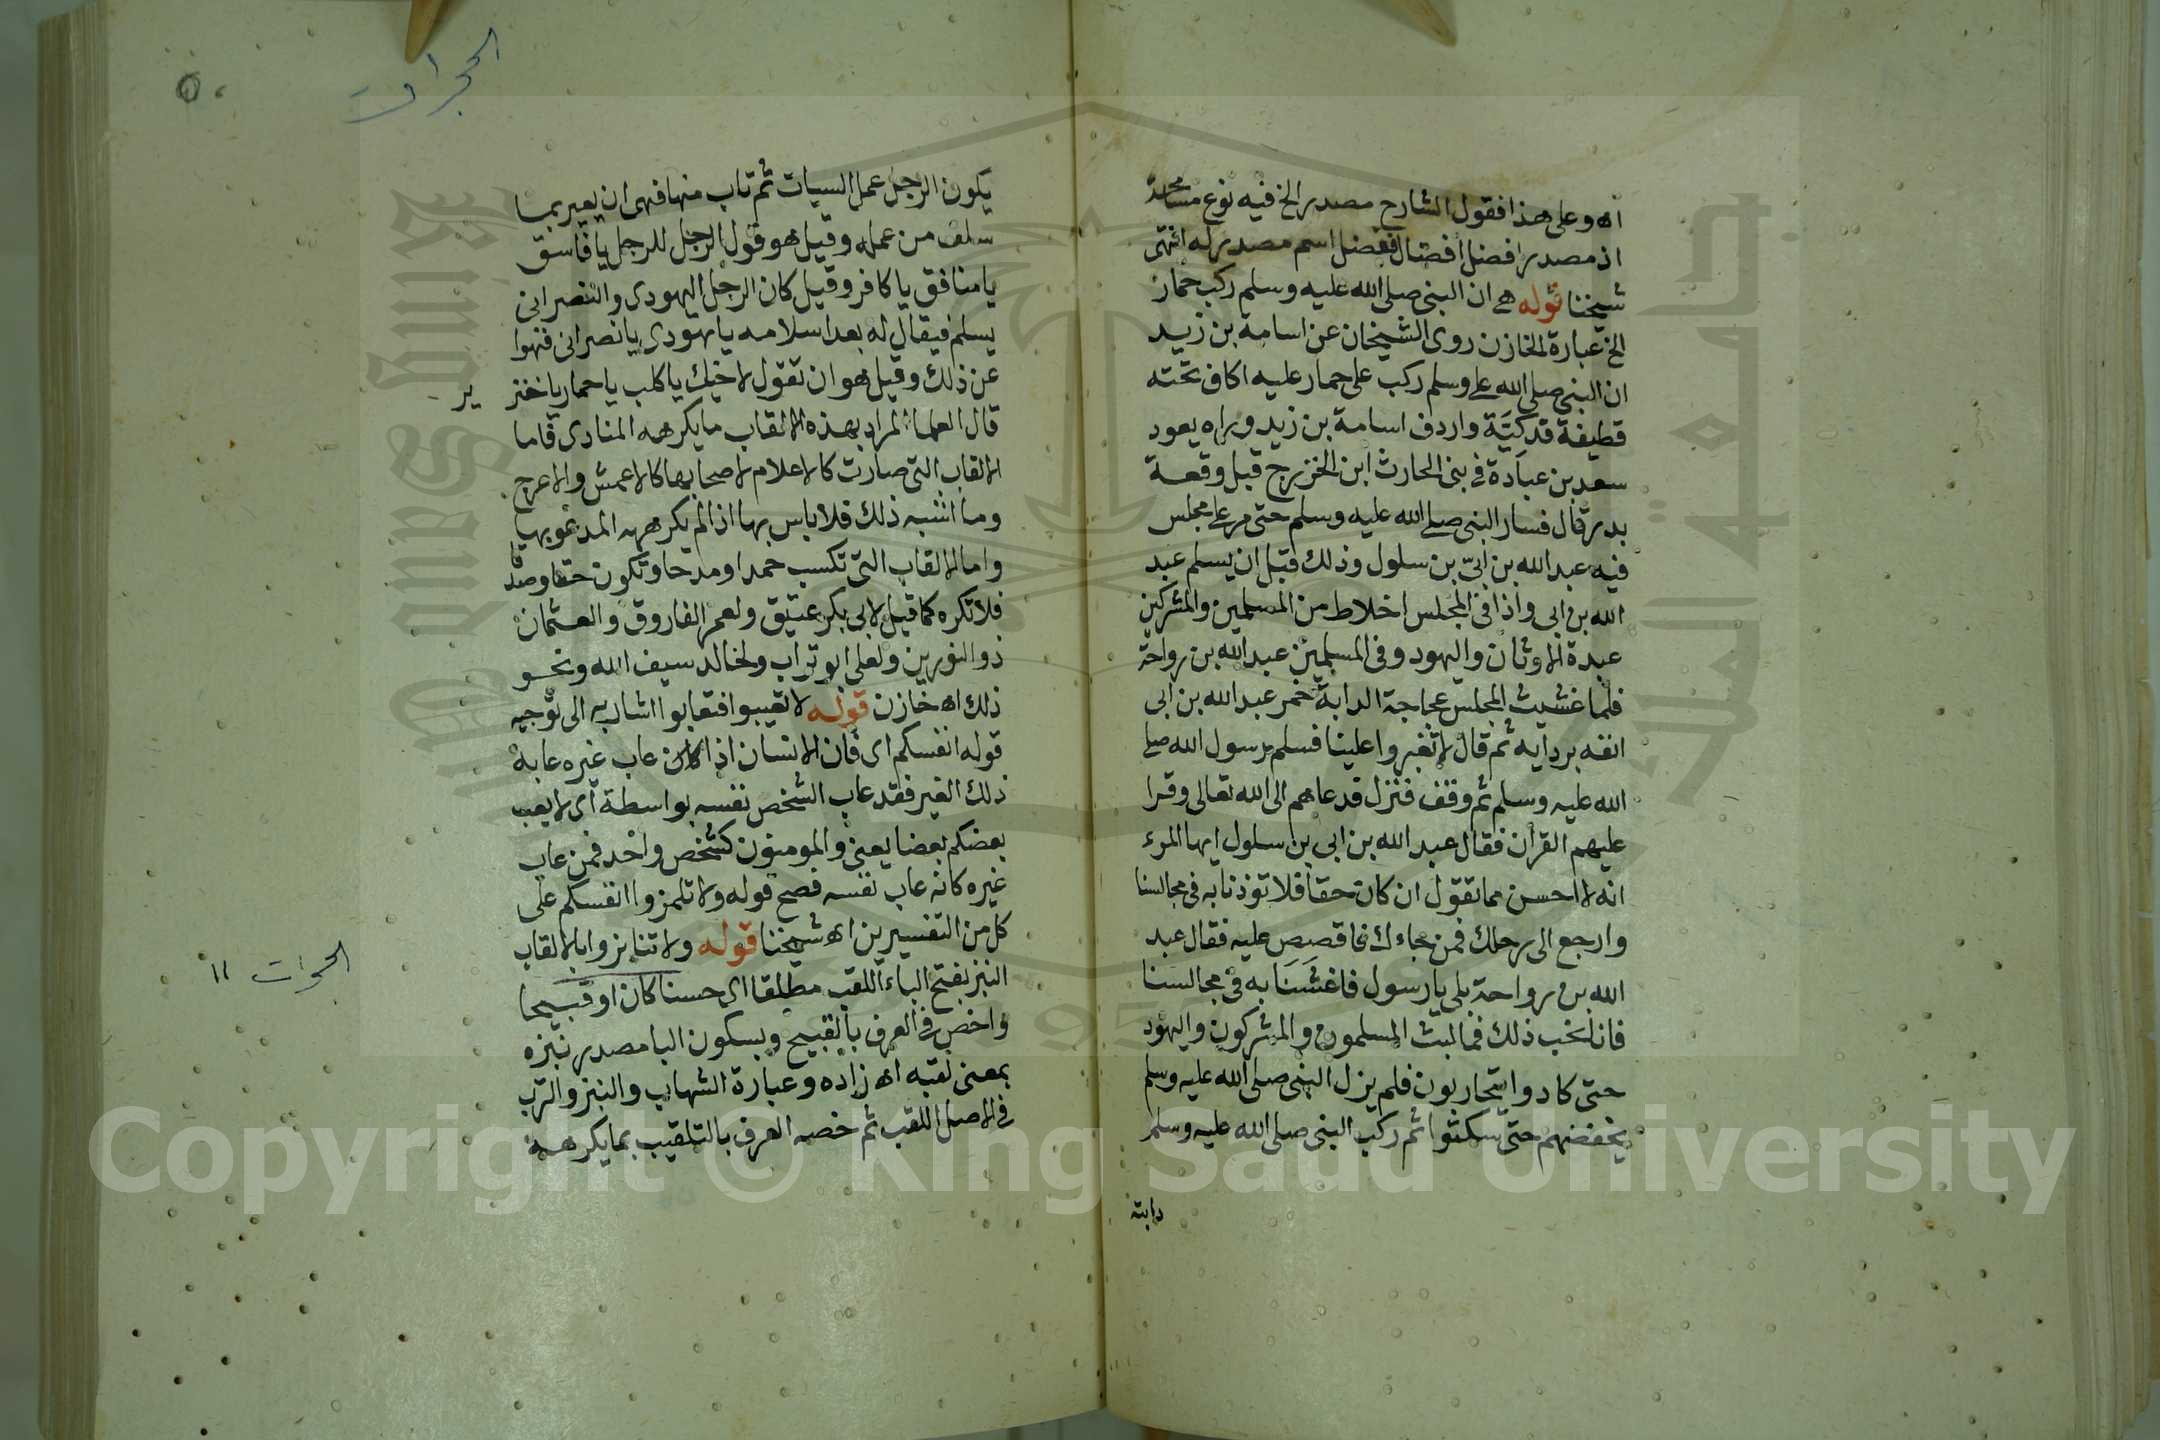 اه وعلى هذا فقول الشارح مصدر الخ فيه نوع مسامحة
اذ مصدر افضل افضال ففضل اسم مصدر له انتهى
شيخنا قوله هي ان النبي صلى الله عليه وسلم ركب حمارا
الخ عبارة الخازن روى الشيخان عن اسامة بن زيد
ان النبي صلى الله عليه وسلم ركب على حمار عليه اكاف تحته
قطيفة فدكيَّة واردف اسامة بن زيد وراه يعود
سعد بن عبادة في بني الحارث ابن الخزرج قبل وقعة
بدر قال فسار النبي صلى الله عليه وسلم حتى مر على مجلس
فيه عبد الله بن ابيّ بن سلول وذلك قبل ان يسلم عبد
الله بن ابي واذا في المجلس اخلاط من المسلمين والمشركين
عبدة الاوثان واليهود وفي المسلمين عبد الله بن رواحة
فلما غشيت المجلس عجاجة الدابة خمر عبد الله بن ابي
انفه بردايه ثم قال لا تغبروا علينا فسلم رسول الله صلى
الله عليه وسلم ثم وقف فنزل فدعاهم الى الله تعالى وقرا
عليهم القرآن فقال عبد الله بن ابي بن سلول ايها المرء
انه لا احسن مما تقول ان كان حقا فلا توذنا به في مجالسنا
وارجع الى رحلك فمن جاءك فاقصص عليه فقال عبد
الله بن رواحة بلى يا رسول فاغشَنَا به في مجالسنا
فانا نحب ذلك فما لبث المسلمون والمشركون واليهود
حتى كادوا يتحاربون فلم يزل النبي صلى الله عليه وسلم
يخفضهم حتى سكنوا ثم ركب النبي صلى الله عليه وسلم
دابته
الحجرات
٥٠
يكون الرجل عمل السيات ثم تاب منها فنهى ان يعير بما
سلف من عمله وقيل هو قول الرجل للرجل يا فاسق
يا منافق يا كافر وقيل كان الرجل اليهودي والنصراني
يسلم فيقال له بعد اسلامه يا يهودي يا نصراني فنهوا
عن ذلك وقيل هو ان تقول لاخيك يا كلب يا حمار يا خنزير
قال العلما المراد بهذه الالقاب ما يكرهه المنادى فاما
الالقاب التي صارت كالاعلام لاصحابها كالاعمش والاعرج
وما اشبه ذلك فلا باس بها اذا لم يكرهه المدعو بها
واما الالقاب التي تكسب حمدا ومدحا وتكون حقا وصدقا
فلا تكره كما قيل لابي بكر عتيق ولعمر الفاروق والعثمان
ذو النورين ولعلي ابو تراب ولخالد سيف الله ونحو
ذلك اه خازن قوله لا تعيبوا فتعابوا اشار به الى توجيه
قوله انفسكم اى فان الانسان اذا كان عاب غيره عابه
ذلك الغير فقد عاب الشخص نفسه بواسطة اى لا يعب
بعضكم بعضا يعني والمومنون كشخص واحد فمن عاب
غيره كانه عاب نفسه فصح قوله ولا تلمزوا انفسكم على
كل من التفسيرين اه شيخنا قوله ولا تنابزوا بالالقاب
النبز بفتح الباء اللقب مطلقا اى حسنا كان او قبيحا
واخص في العرف بالقبيح وبسكون البا مصدر نبزه
بمعنى لقبه اه زاده وعبارة الشهاب والنبز والنزب
في الاصل اللقب ثم خصه العرف بالتلقيب بما يكرهه
الحجرات ١١
جامعة الملك سعود
King Saud University
1957
Copyright © King Saud University